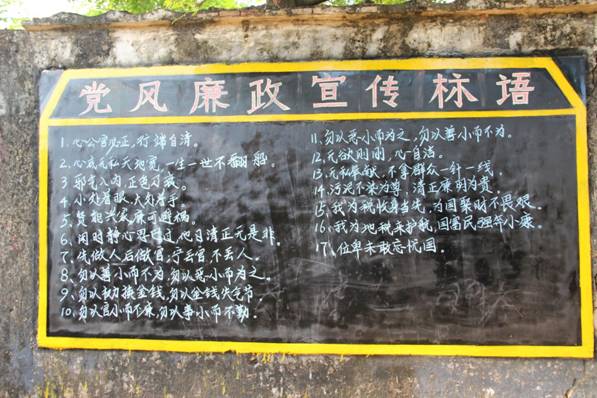 党风廉政宣传林语
1、心公官见正,行端自清。
2、心底无私天地宽,一生一世不翻船。
3、邪气入内,正色乃衰。
4、小处着眼,大处着手。
5、贤能兴家廉可避祸。
6、闲时静心思己过,他日清正无是非。
7、先做人后做官,宁丢官不丢人。
8、勿以善小而不为,勿以恶小而为之。
9、勿以权换金钱,勿以金钱失气节。
10、勿以官小而不廉,勿以事小而不勤。
11、勿以恶小而为之,勿以善小而不为。
12、无欲则刚,心自洁。
13、无私奉献,不拿群众一针一线。
14、污泥不染为尊,清正廉明为贵。
15、我为税收身当先,为国聚财不畏艰。
16、我为地税来护航,国富民强奔小康。
17、位卑未敢忘忧国。